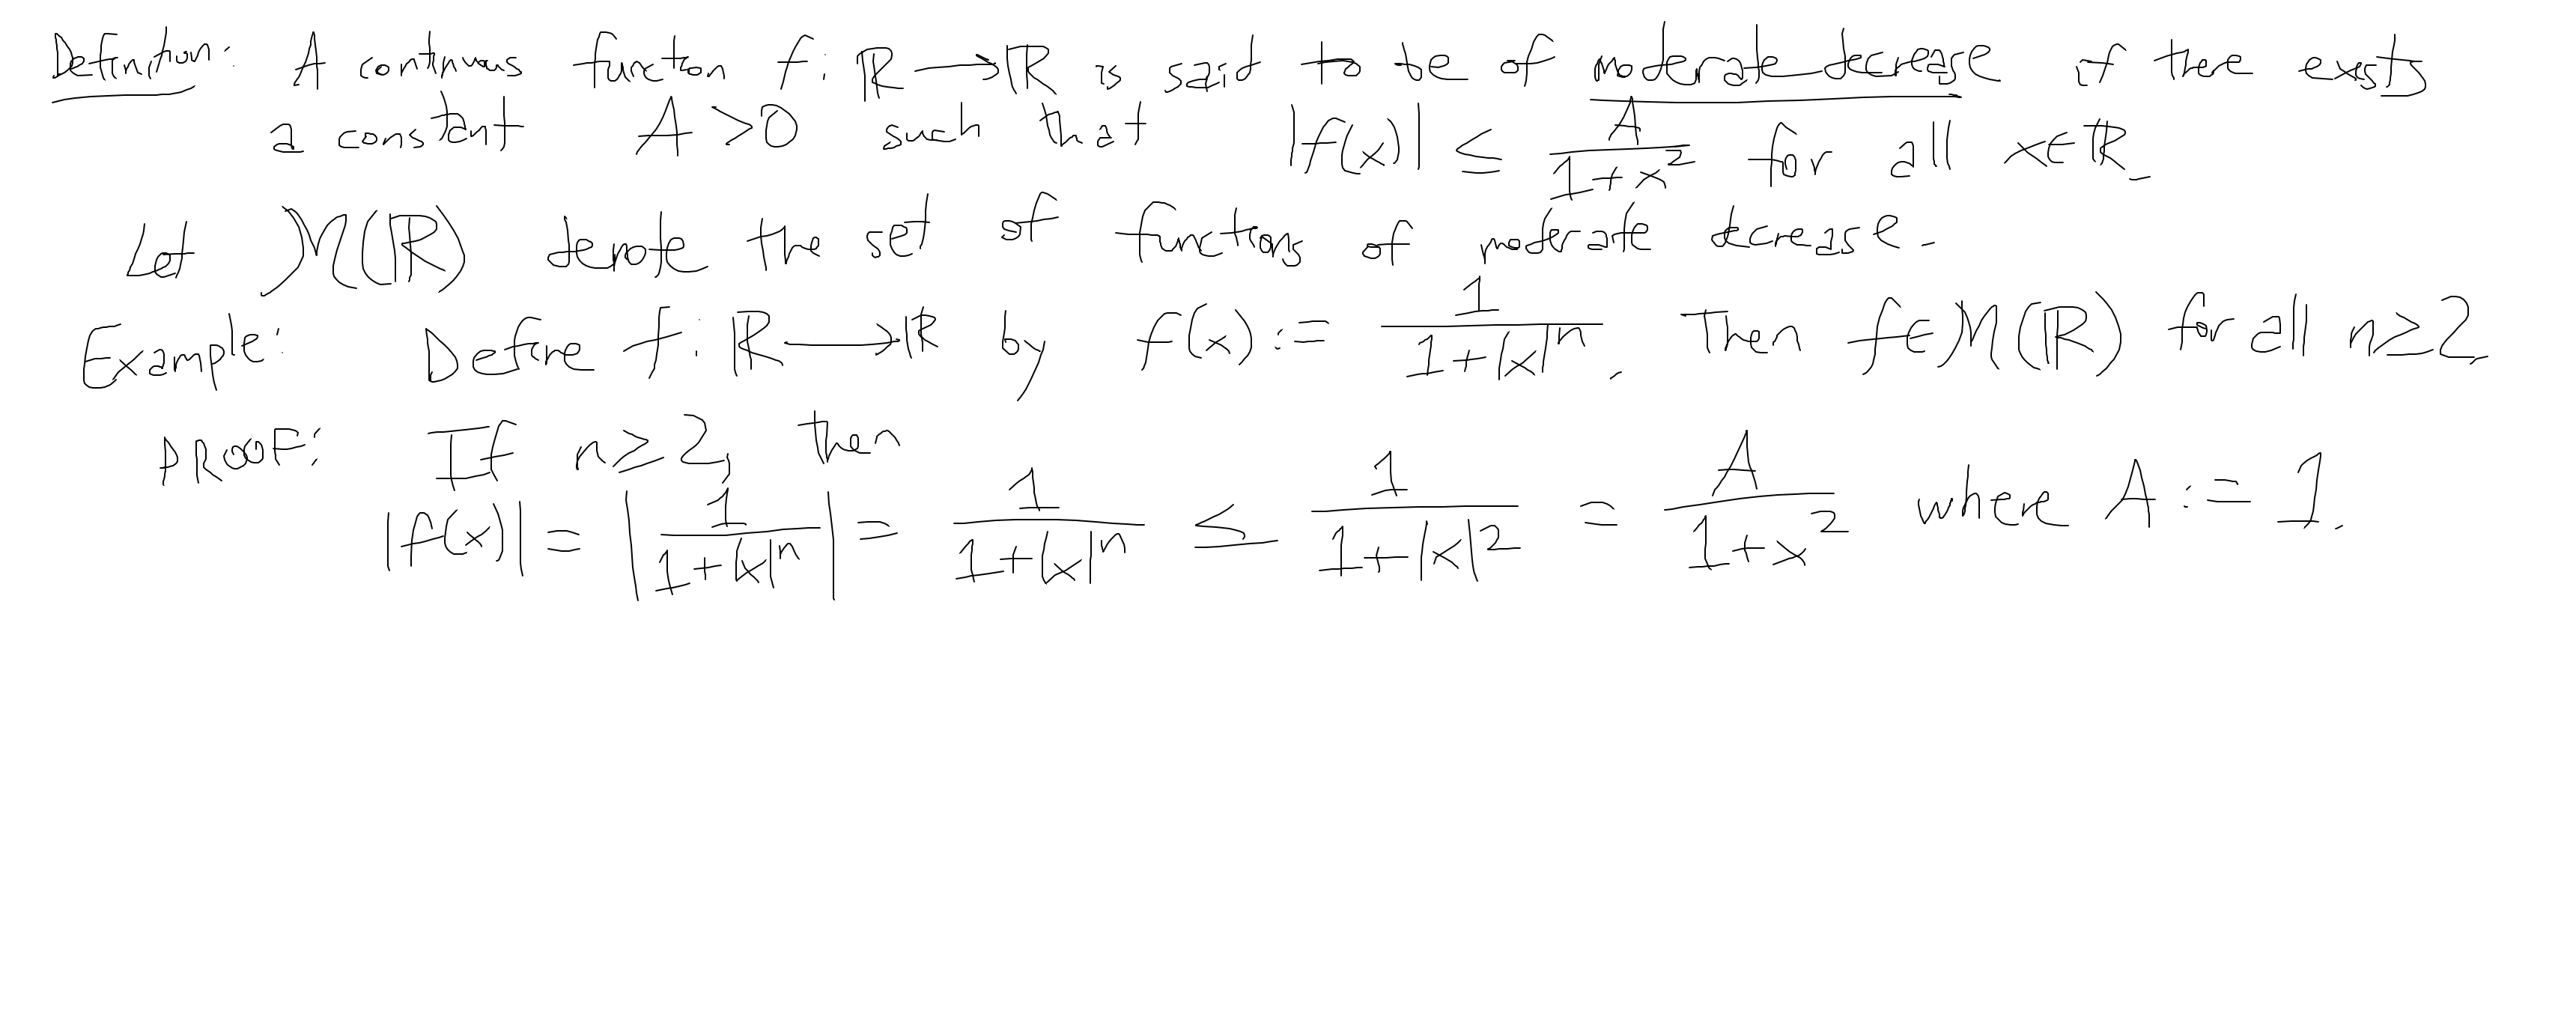 Definition: A continuous function f: ℝ→ℝ is said to be of moderate decrease if there exists
a constant A>0 such that |f(x)| ≤ A/(1+x²) for all x∈ℝ.
Let M(ℝ) denote the set of functions of moderate decrease.
Example: Define f: ℝ→ℝ by f(x) := 1/(1+|x|ⁿ). Then f∈M(ℝ) for all n≥2.
PROOF: If n≥2, then
|f(x)| = |1/(1+|x|ⁿ)| = 1/(1+|x|ⁿ) ≤ 1/(1+|x|²) = A/(1+x²) where A := 1.